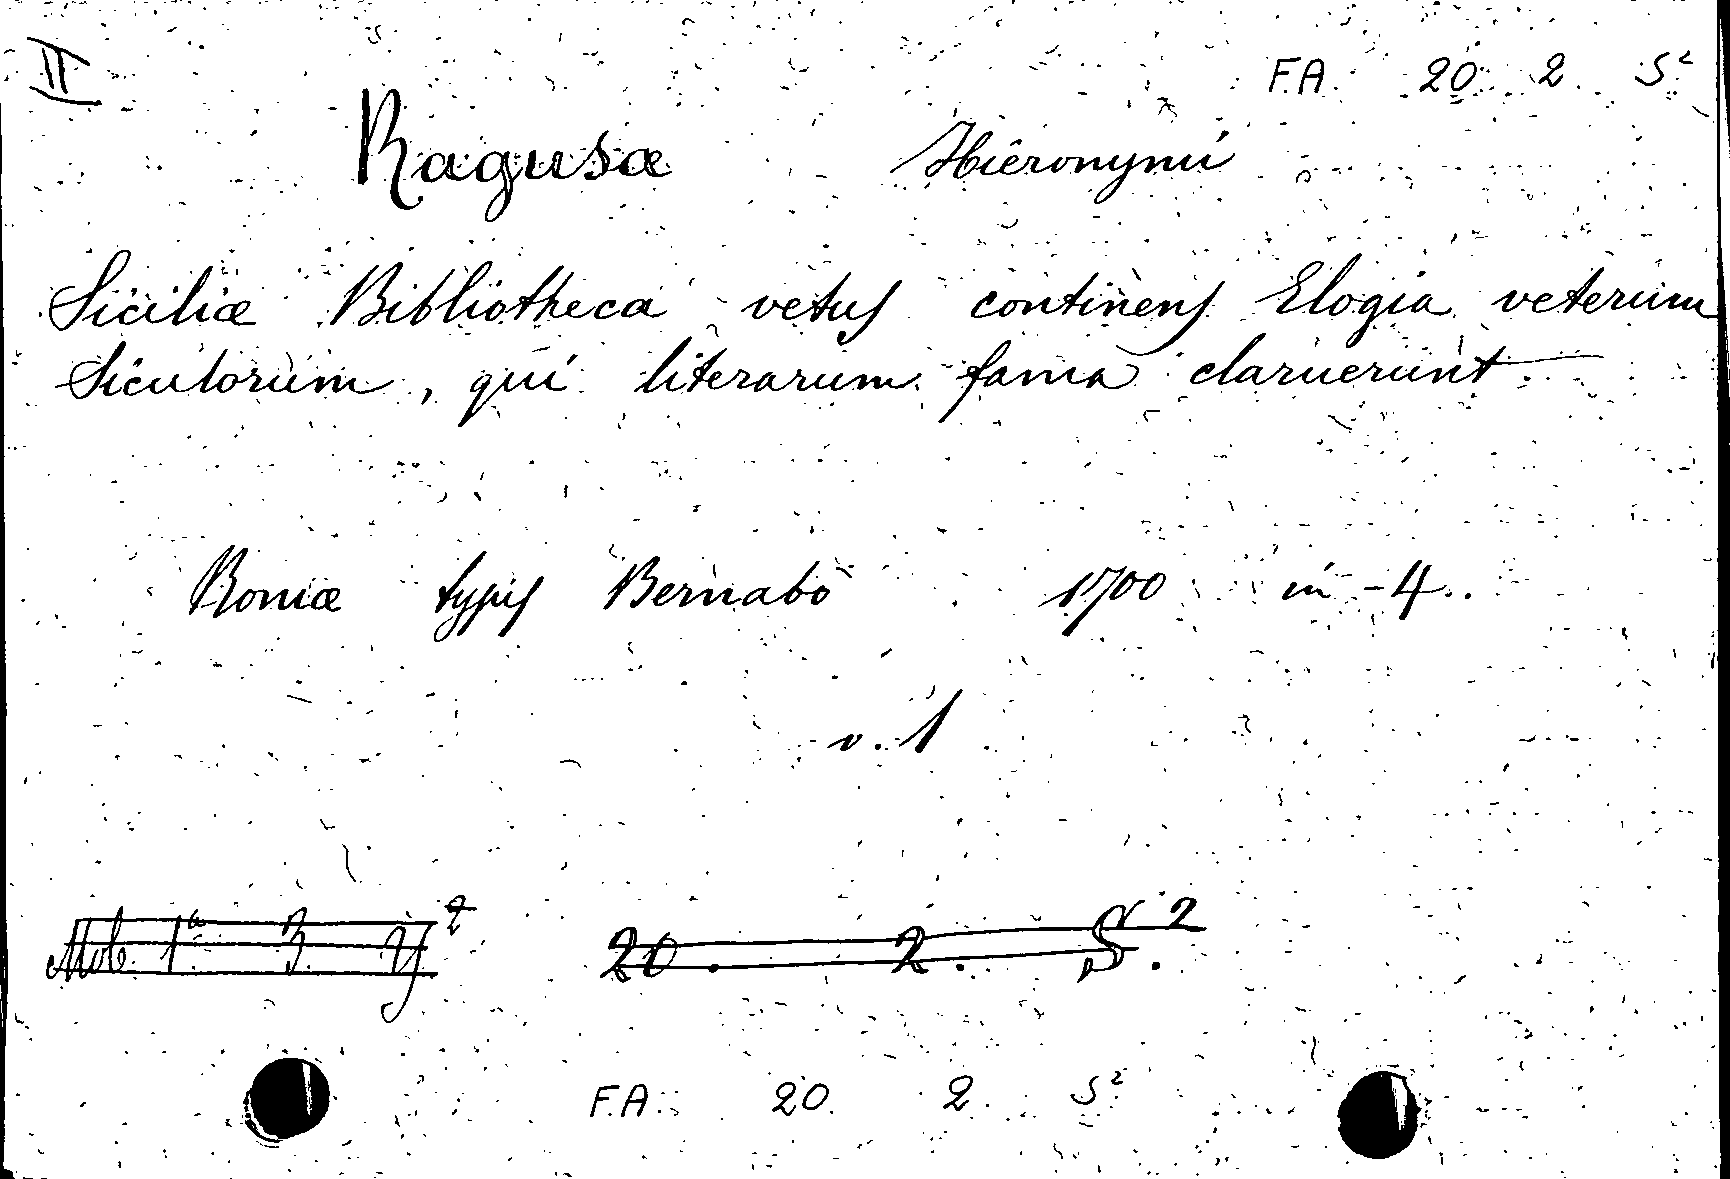 II
F.A. 20 2 S²
Ragusa Hieronymi
Siciliæ Bibliotheca vetus continens Elogia veterum
Siculorum, qui literarum fama claruerunt
Romæ typis Bernabò 1700 in-4.
v. 1
Mob. 1ª 3 Y² 20. 2. S².
F.A. 20. 2. S²